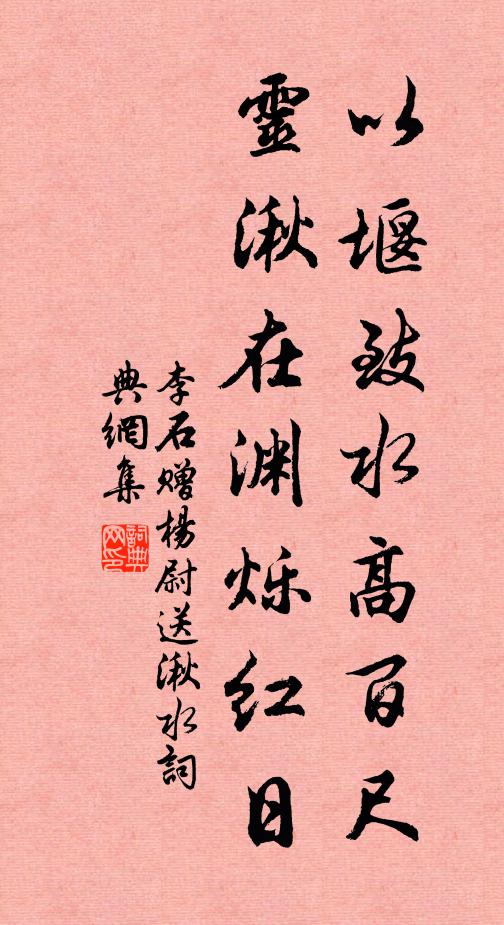 以堰致水高百尺
靈湫在渊烁红日
李石赠楊尉送湫水詞
典網集
詞典网印